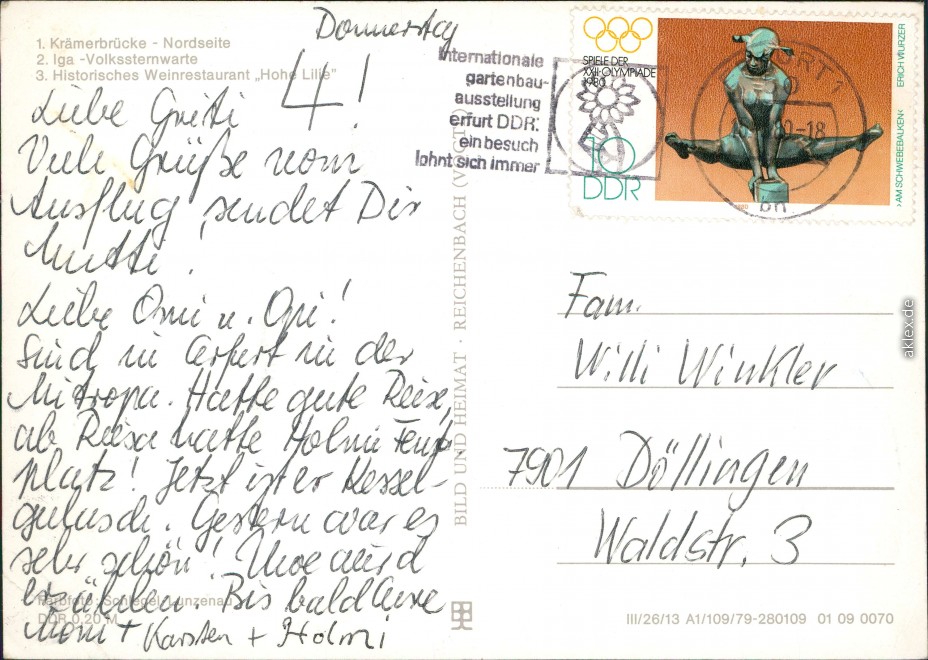 Donnerstag
1. Krämerbrücke - Nordseite
2. Iga -Volkssternwarte
3. Historisches Weinrestaurant „Hohe Lilie"
4!
Liebe
Viele Grüße vom
Ausflug sendet Dir
Mutti!
Liebe Omi u. Opi!
Sind in Erfurt in der
Mitropa. Hatte gute Reise,
ab Riesa hatte Holmi
platz! Jetzt ist er Kessel-
gulasch. Gestern war es
sehr schön! Uwe wird
erzählen. Bis bald Eure
Moni + Karsten + Holmi
DDR 0,20 M
BILD UND HEIMAT · REICHENBACH (VOGTL)
internationale
gartenbau-
ausstellung
erfurt DDR:
ein besuch
lohnt sich immer
SPIELE DER
XXII. OLYMPIADE
1980
10
DDR
ERICH WURZER
›AM SCHWEBEBALKEN‹
Fam.
Willi Winkler
7901 Döllingen
Waldstr. 3
III/26/13 A1/109/79-280109 01 09 0070
aklex.de